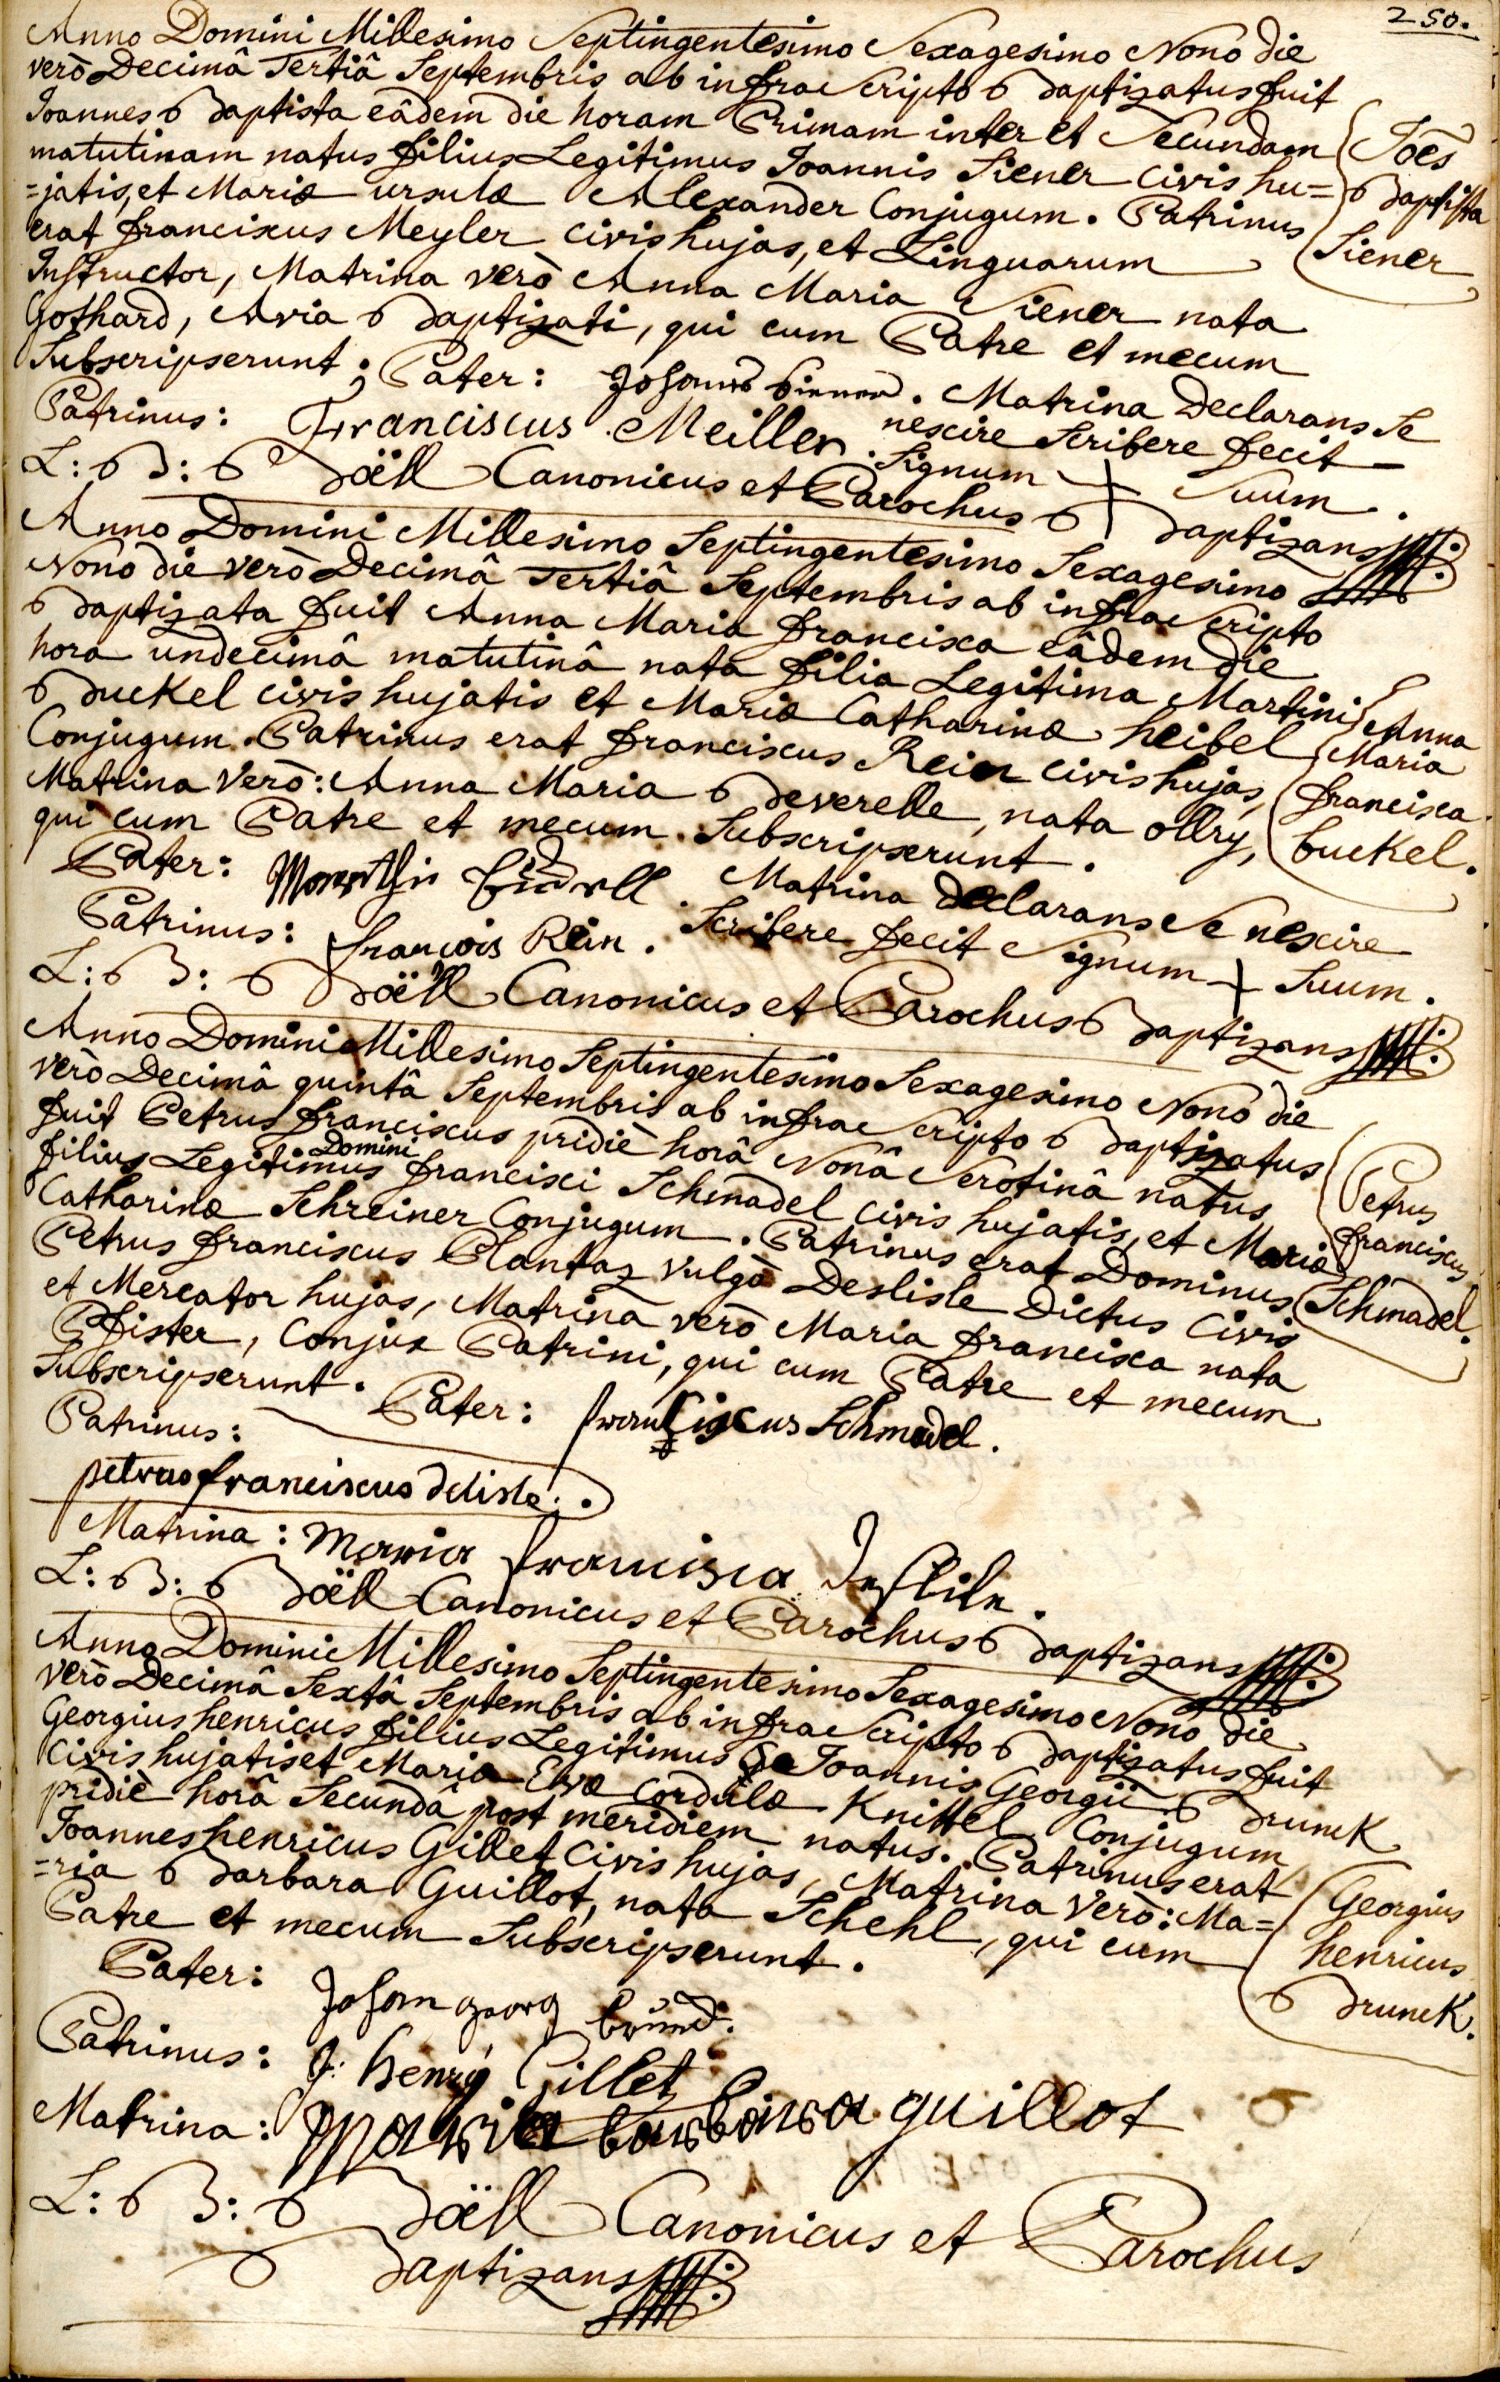 250.
Anno Domini Millesimo Septingentesimo Sexagesimo Nono die
verò Decimâ Tertiâ Septembris ab infra Scripto Baptizatus fuit
Joannes Baptista eâdem die horam Primam inter et Secundam
matutinam natus filius Legitimus Joannis Siener civis hu=
=jatis, et Mariæ ursulæ Alexander Conjugum. Patrinus
erat franciscus Meyler civis hujas, et Linguarum
Instructor, Matrina verò Anna Maria Siener nata
Gothard, Avia Baptizati, qui cum Patre et mecum
Subscripserunt;
Joēs
Baptista
Siener
Pater: Johannes Siener. Matrina Declarans Se
nescire Scribere fecit
Patrinus: Franciscus Meiller. Signum + Suum.
L: B: Böëll Canonicus et Parochus Baptizans
Anno Domini Millesimo Septingentesimo Sexagesimo
Nono die verò Decimâ Tertiâ Septembris ab infra Scripto
Baptizata fuit Anna Maria francisca eâdem die
hora undecimâ matutinâ nata filia Legitima Martini
Buckel civis hujatis et Mariæ Catharinæ heibel
Conjugum. Patrinus erat franciscus Rein civis hujas,
Matrina Verò: Anna Maria Beverelle, nata ollry,
qui cum Patre et mecum Subscripserunt.
Anna
Maria
francisca
buckel.
Pater: Marthin . Matrina Declarans Se nescire
Patrinus: francois Rein. Scribere fecit Signum + Suum.
L: B: Böëll Canonicus et Parochus Baptizans
Anno Domini Millesimo Septingentesimo Sexagesimo Nono die
verò Decimâ quintâ Septembris ab infra Scripto Baptizatus
fuit Petrus franciscus pridiè horâ Nonâ Serotinâ natus
filius Legitimus Domini francisci Schmadel civis hujatis, et Mariæ
Catharinæ Schreiner Conjugum. Patrinus erat Dominus
Petrus franciscus Plantaz vulgò Deslisle Dictus Civis
et Mercator hujas, Matrina verò Maria francisca nata
Pfister, Conjux Patrini, qui cum Patre et mecum
Subscripserunt.
Petrus
franciscus
Schmadel.
Pater: franciscus Schmadel.
Patrinus:
petrus franciscus delisle.
Matrina: Maria francisca
L: B: Böëll Canonicus et Parochus Baptizans
Anno Domini Millesimo Septingentesimo Sexagesimo Nono die
verò Decimâ Sextâ Septembris ab infra Scripto Baptizatus fuit
Georgius henricus filius Legitimus Joannis Georgii Brunck
Civis hujatis et Maria Evæ Cordulæ Knittel Conjugum
pridiè horâ Secundâ post meridiem natus. Patrinus erat
Joannes henricus Gillet Civis hujas, Matrina Verò: Ma=
=ria Barbara Guillot, nata Schehl, qui cum
Patre et mecum Subscripserunt.
Georgius
henricus
Brunck.
Pater: Johann georg brunck.
Patrinus: J: henry Gillet
Matrina: Maria barbara guillot
L: B: Böëll Canonicus et Parochus
Baptizans